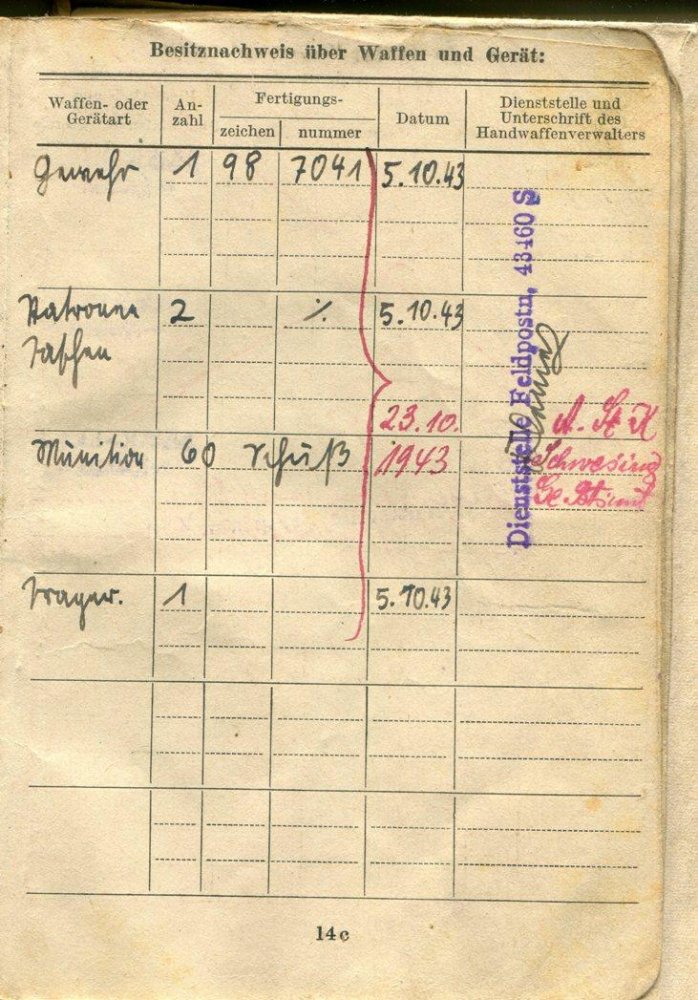 Besitznachweis über Waffen und Gerät:
Waffen- oder Gerätart
An-zahl
Fertigungs-
zeichen
nummer
Datum
Dienststelle und Unterschrift des Handwaffenverwalters
Gewehr 1 98 7041 5.10.43
Patronen 2 ⁒ 5.10.43
Taschen
23.10.
Munition 60 Schuß 1943
Dienststelle Feldpostn. 43460 S
Schwesing
Trager. 1 5.10.43
14c